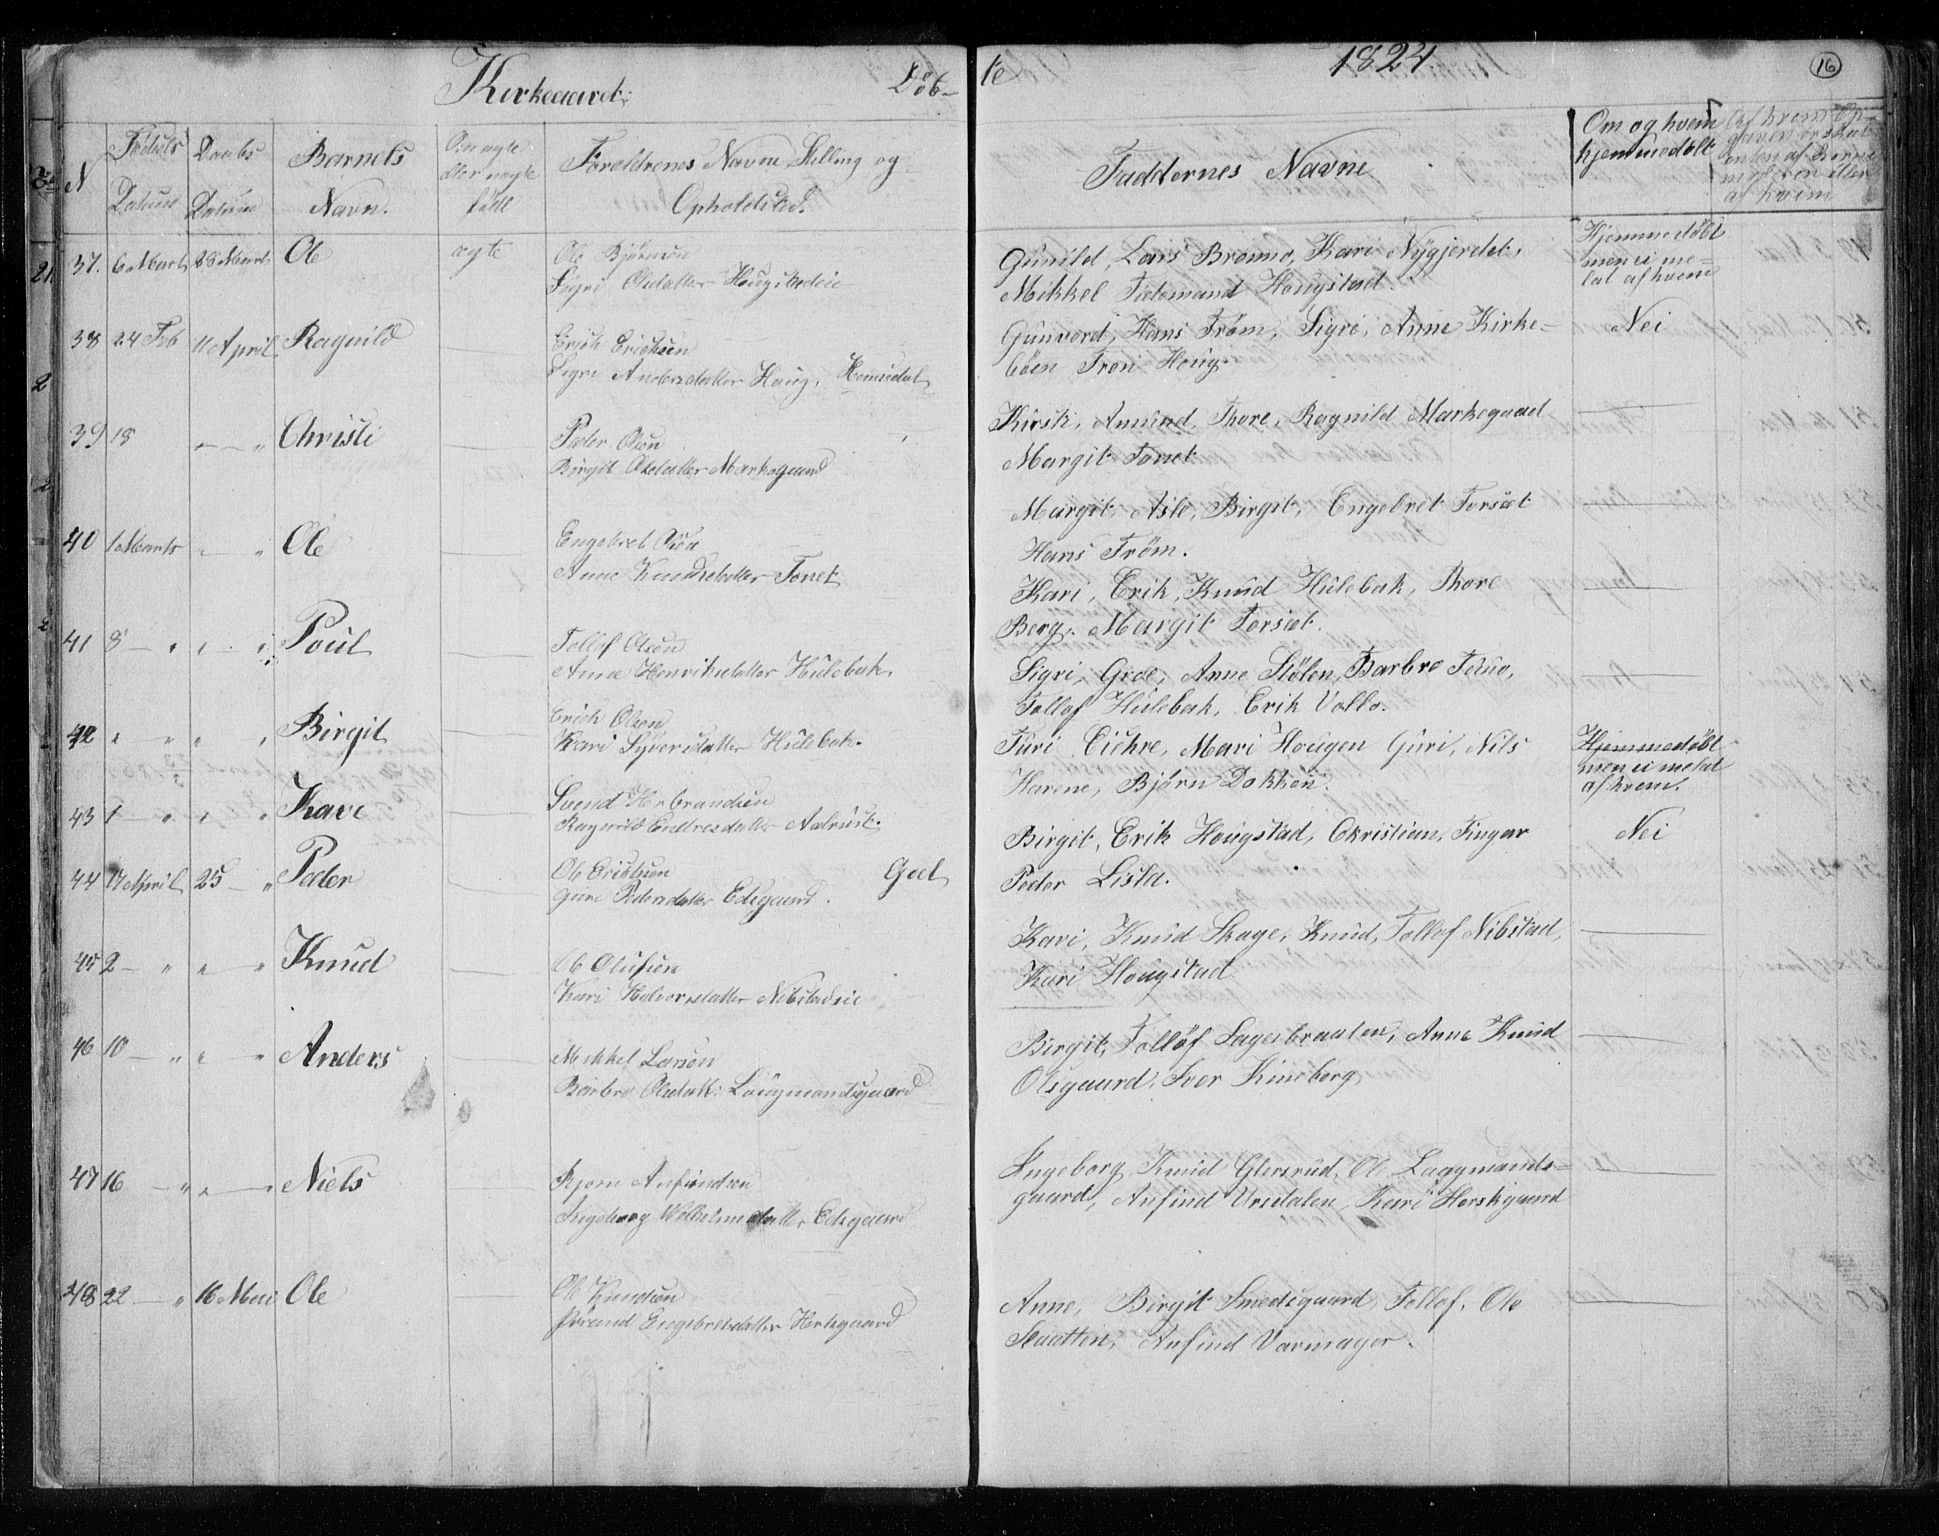 Kirkeaaret
Døb-
te
1824
16
N
Fødsels
Datum
Daabs
Datum
Barnets
Navn.
Om ægte
eller uægte
født
Forældrenes Navne Stilling og
Opholdsted.
Faddernes Navne
Om og hvem
hjemmedøbt
af hvem
37. 6 Marts 28 Marts Ole ægte Ole Bjørnsen
Sigri Olsdatter Hougstadeie
Gunild, Lars Brenno, Kari Nÿgjerdet,
Mikkel Tidemand Hougstad.
Hjemmedøbt
men ei me-
lat af hvem
38 24 Feb 11 April Ragnild Erich Erichsen
Sigri Andersdatter Haug, Hemsedal
Gunvord, Hans Trøm, Sigri, Anne Kirke-
böen Trøn Houg.
Nei
39 18 " " Christi Peder Olsen
Birgit Olsdatter Markegaard
Kirsti, Amund, Thore, Ragnild Markegaard
Margit Tonet
40 1 Marts " " Ole Engebret Olsen
Anne Knudsdatter Tonet
Margit, Asle, Birgit, Engebret Torset
Hans Trøm.
41 8 " " " Poul Tollef Olsen
Anne Henriksdatter Hulebak.
Kari, Erik, Knud Hulebak, Thore
Berg. Margit Torset.
42 " " " " Birgit Erich Olsen
Kari Syversdatter Hulebak.
Sigri, Groe, Anne Stølen, Barbro
Tollof Hulebak, Erik Vollo.
43 1 " " " Kari Svend Herbrandsen
Ragnild Endresdatter Aalrust.
Turi Eichre, Mari Hougen Guri, Nils
Harene, Bjørn Dokken.
Hjemmedøbt
men ei melat
af hvem.
44 17 April 25 " Peder Ole Erichsen Goel
Guri Pedersdatter Edsgaard.
Birgit, Erik Hougstad, Christian, Fingar
Peder Lisld.
Nei
45 2 " " " Knud Ole Olufsen
Kari Halvorsdatter Nibstadeie
Kari, Knud Skage, Knud, Tollof Nibstad,
Kari Hougstad
46 10 " " " Anders Mikkel Larsen
Barbro Olsdatt: Laugmandsgaard
Birgit, Tolløf Sagerbraaten, Anne Knud
Olsgaard, Iver Kineberg
47 16 " " " Niels Bjørn Anfindsen
Ingeborg Wilhelmsdatter Edsgaard
Ingeborg Knud Glersrud, Ole Laggmands-
gaard, Anfind Ursdalen, Kari Hersksgaard
48 22 " 16 Mai Ole Ole Knudsen
Jørand Engebretsdatter Hersgaard
Anne, Birgit Smedsgaard, Tollof, Ole
Skaatten, Anfind Varmager.